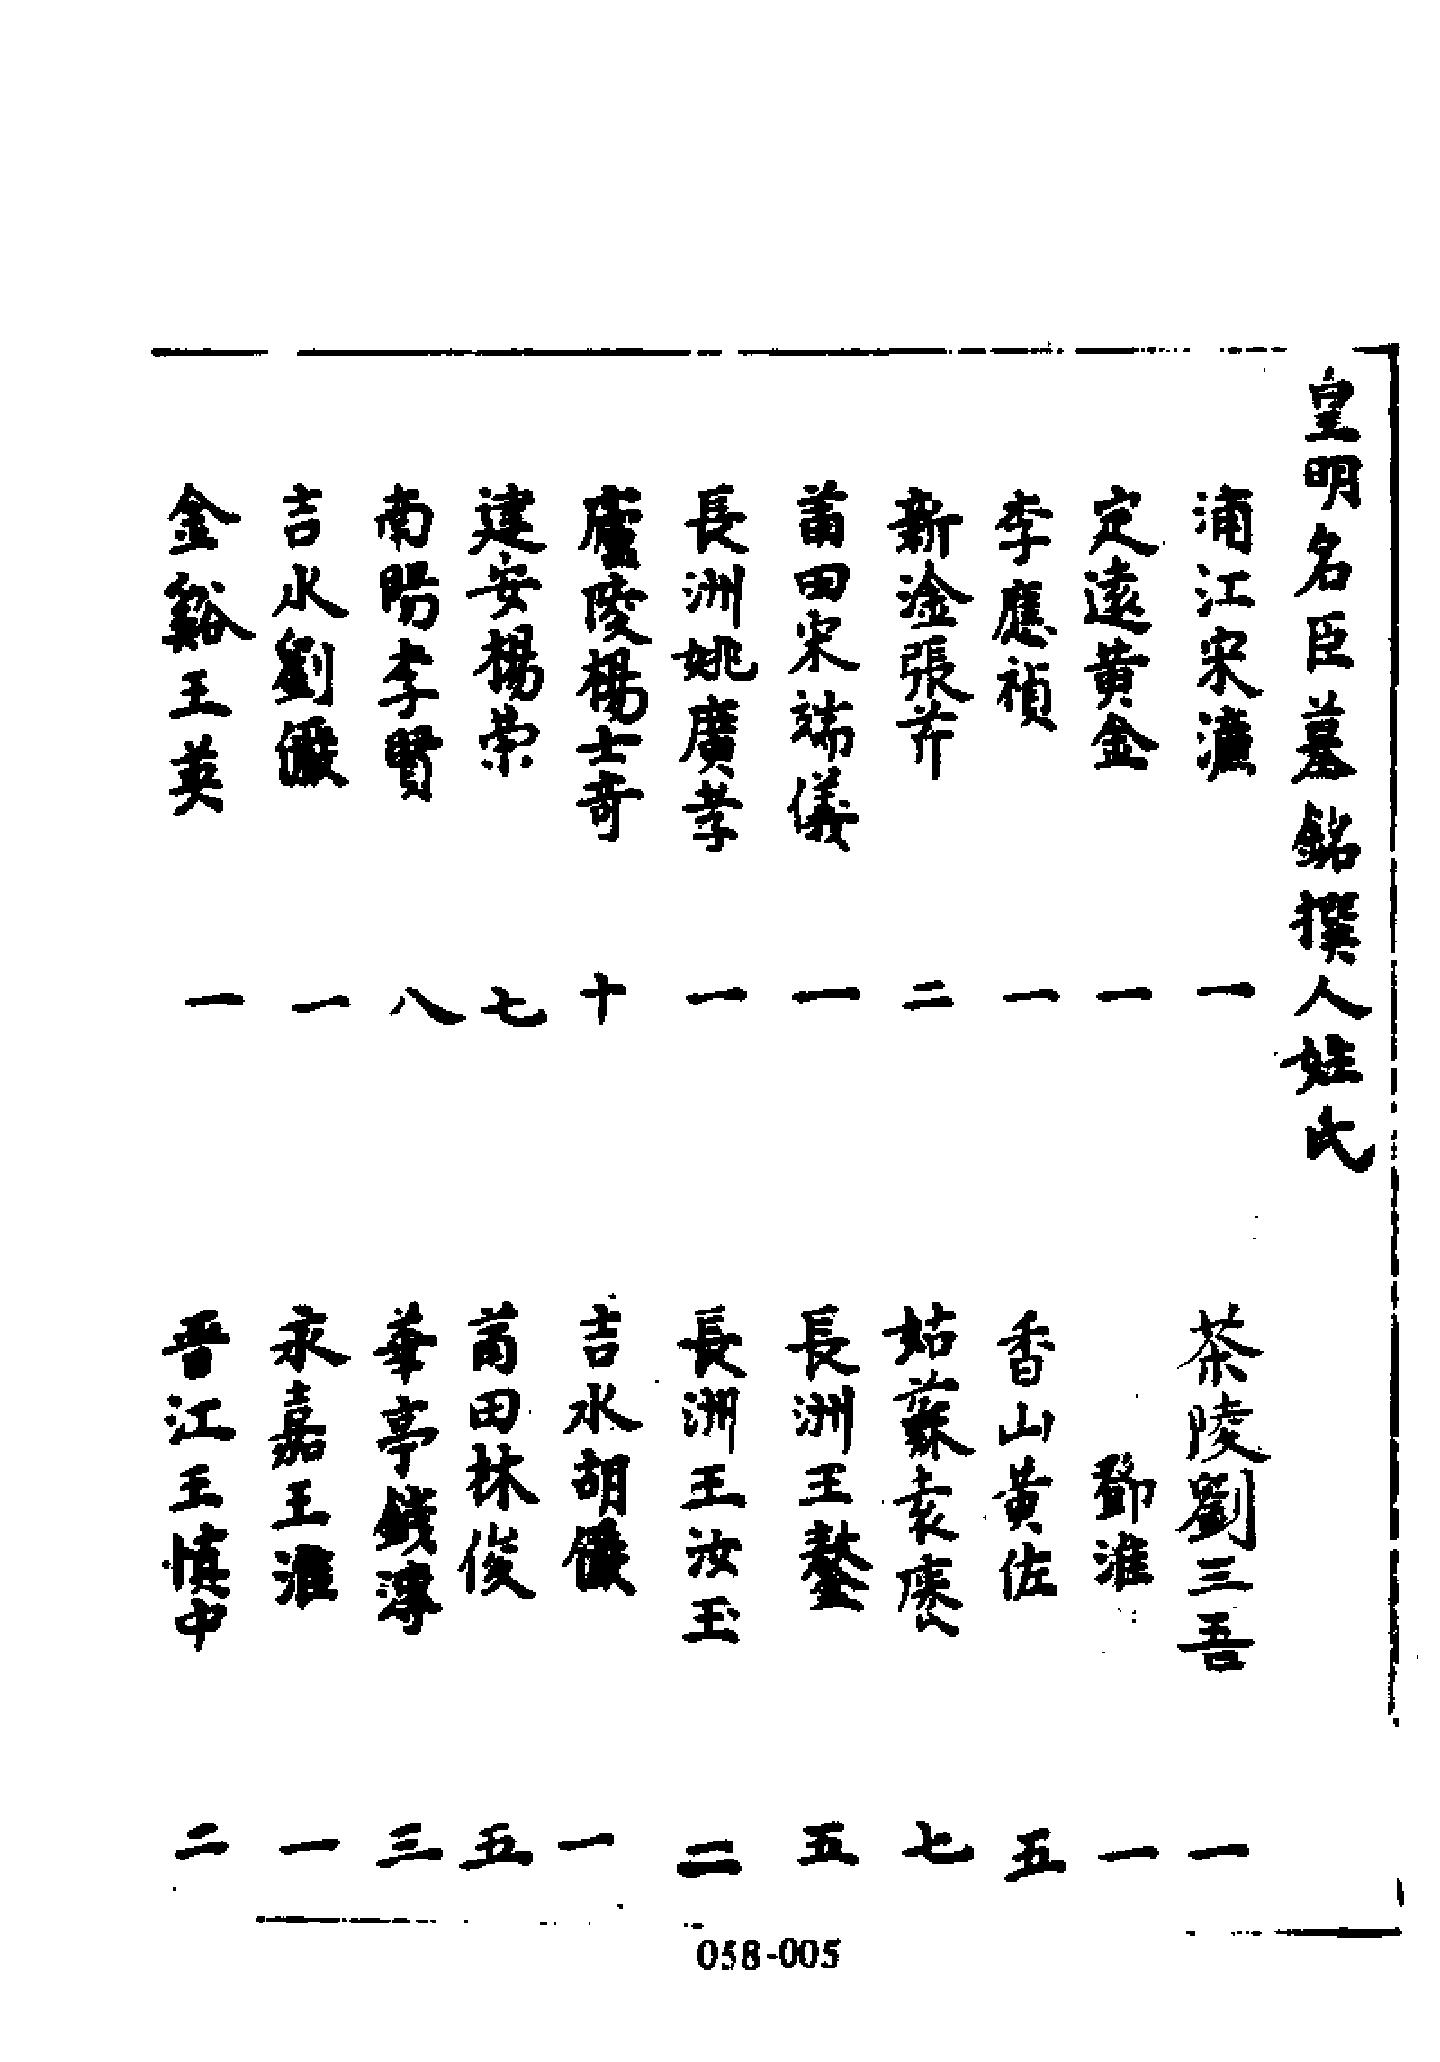 皇明名臣墓銘撰人姓氏
浦江宋濂 一 茶陵劉三吾 一
定遠黃金 一 鄧淮 一
李應禎 一 香山黃佐 五
新淦張芹 二 姑蘇袁袠 七
莆田宋端儀 一 長洲王鏊 五
長洲姚廣孝 一 長洲王汝玉 二
廬陵楊士奇 十 吉水胡儼 一
建安楊榮 七 莆田林俊 五
南陽李賢 八 華亭錢溥 三
吉水劉儼 一 永嘉王淮 一
金谿王英 一 晋江王慎中 二
058-005